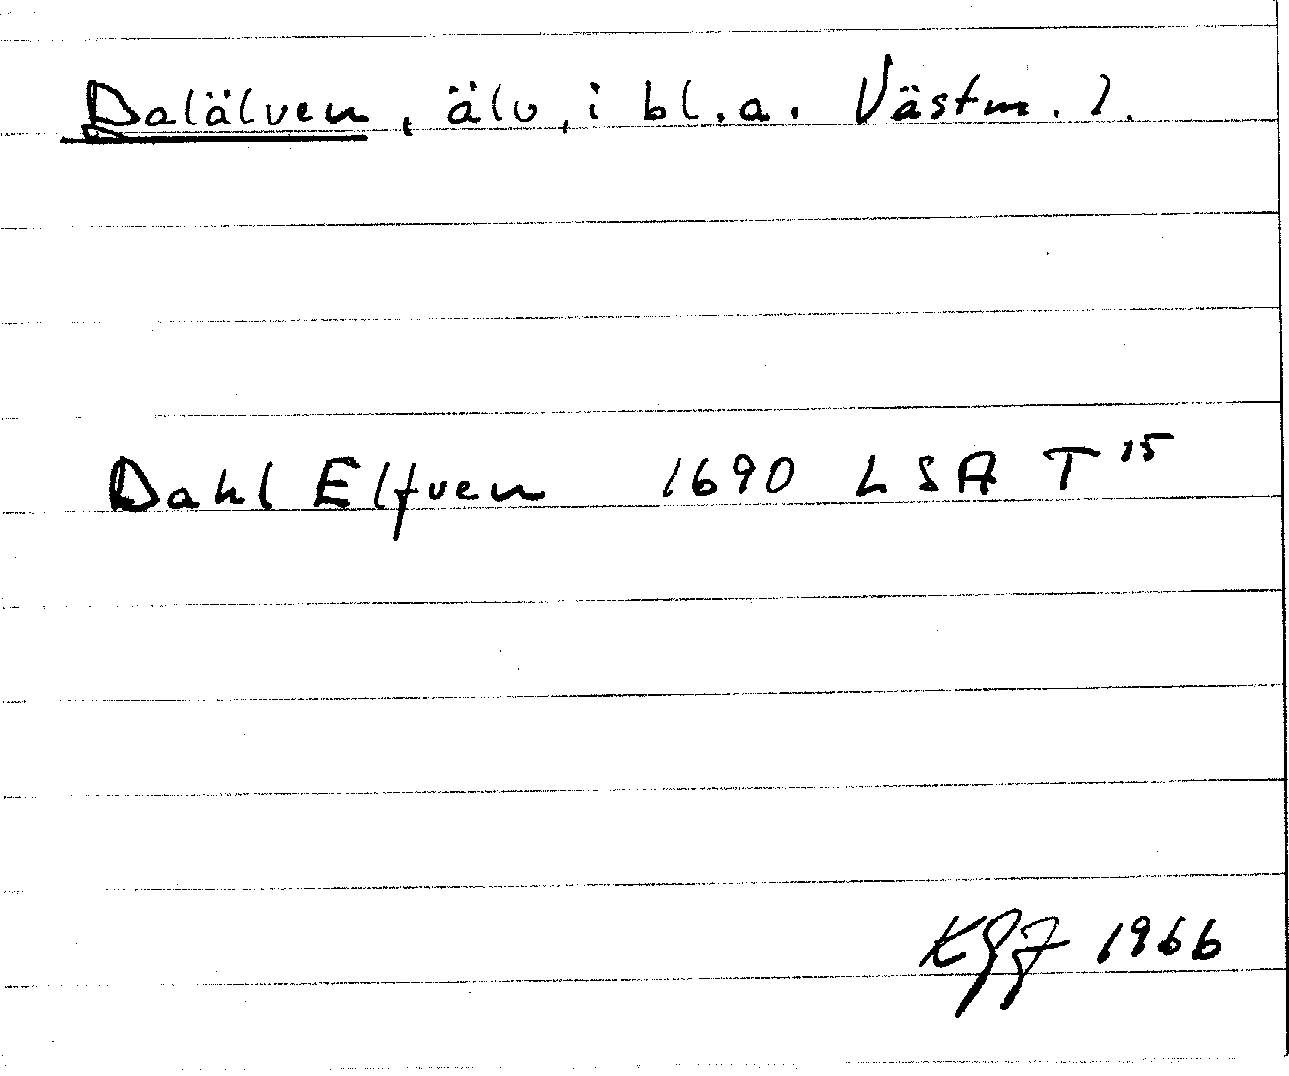 Dalälven, älv, i bl.a. Västm. l.
Dahl Elfven 1690 LSA T 15
1966